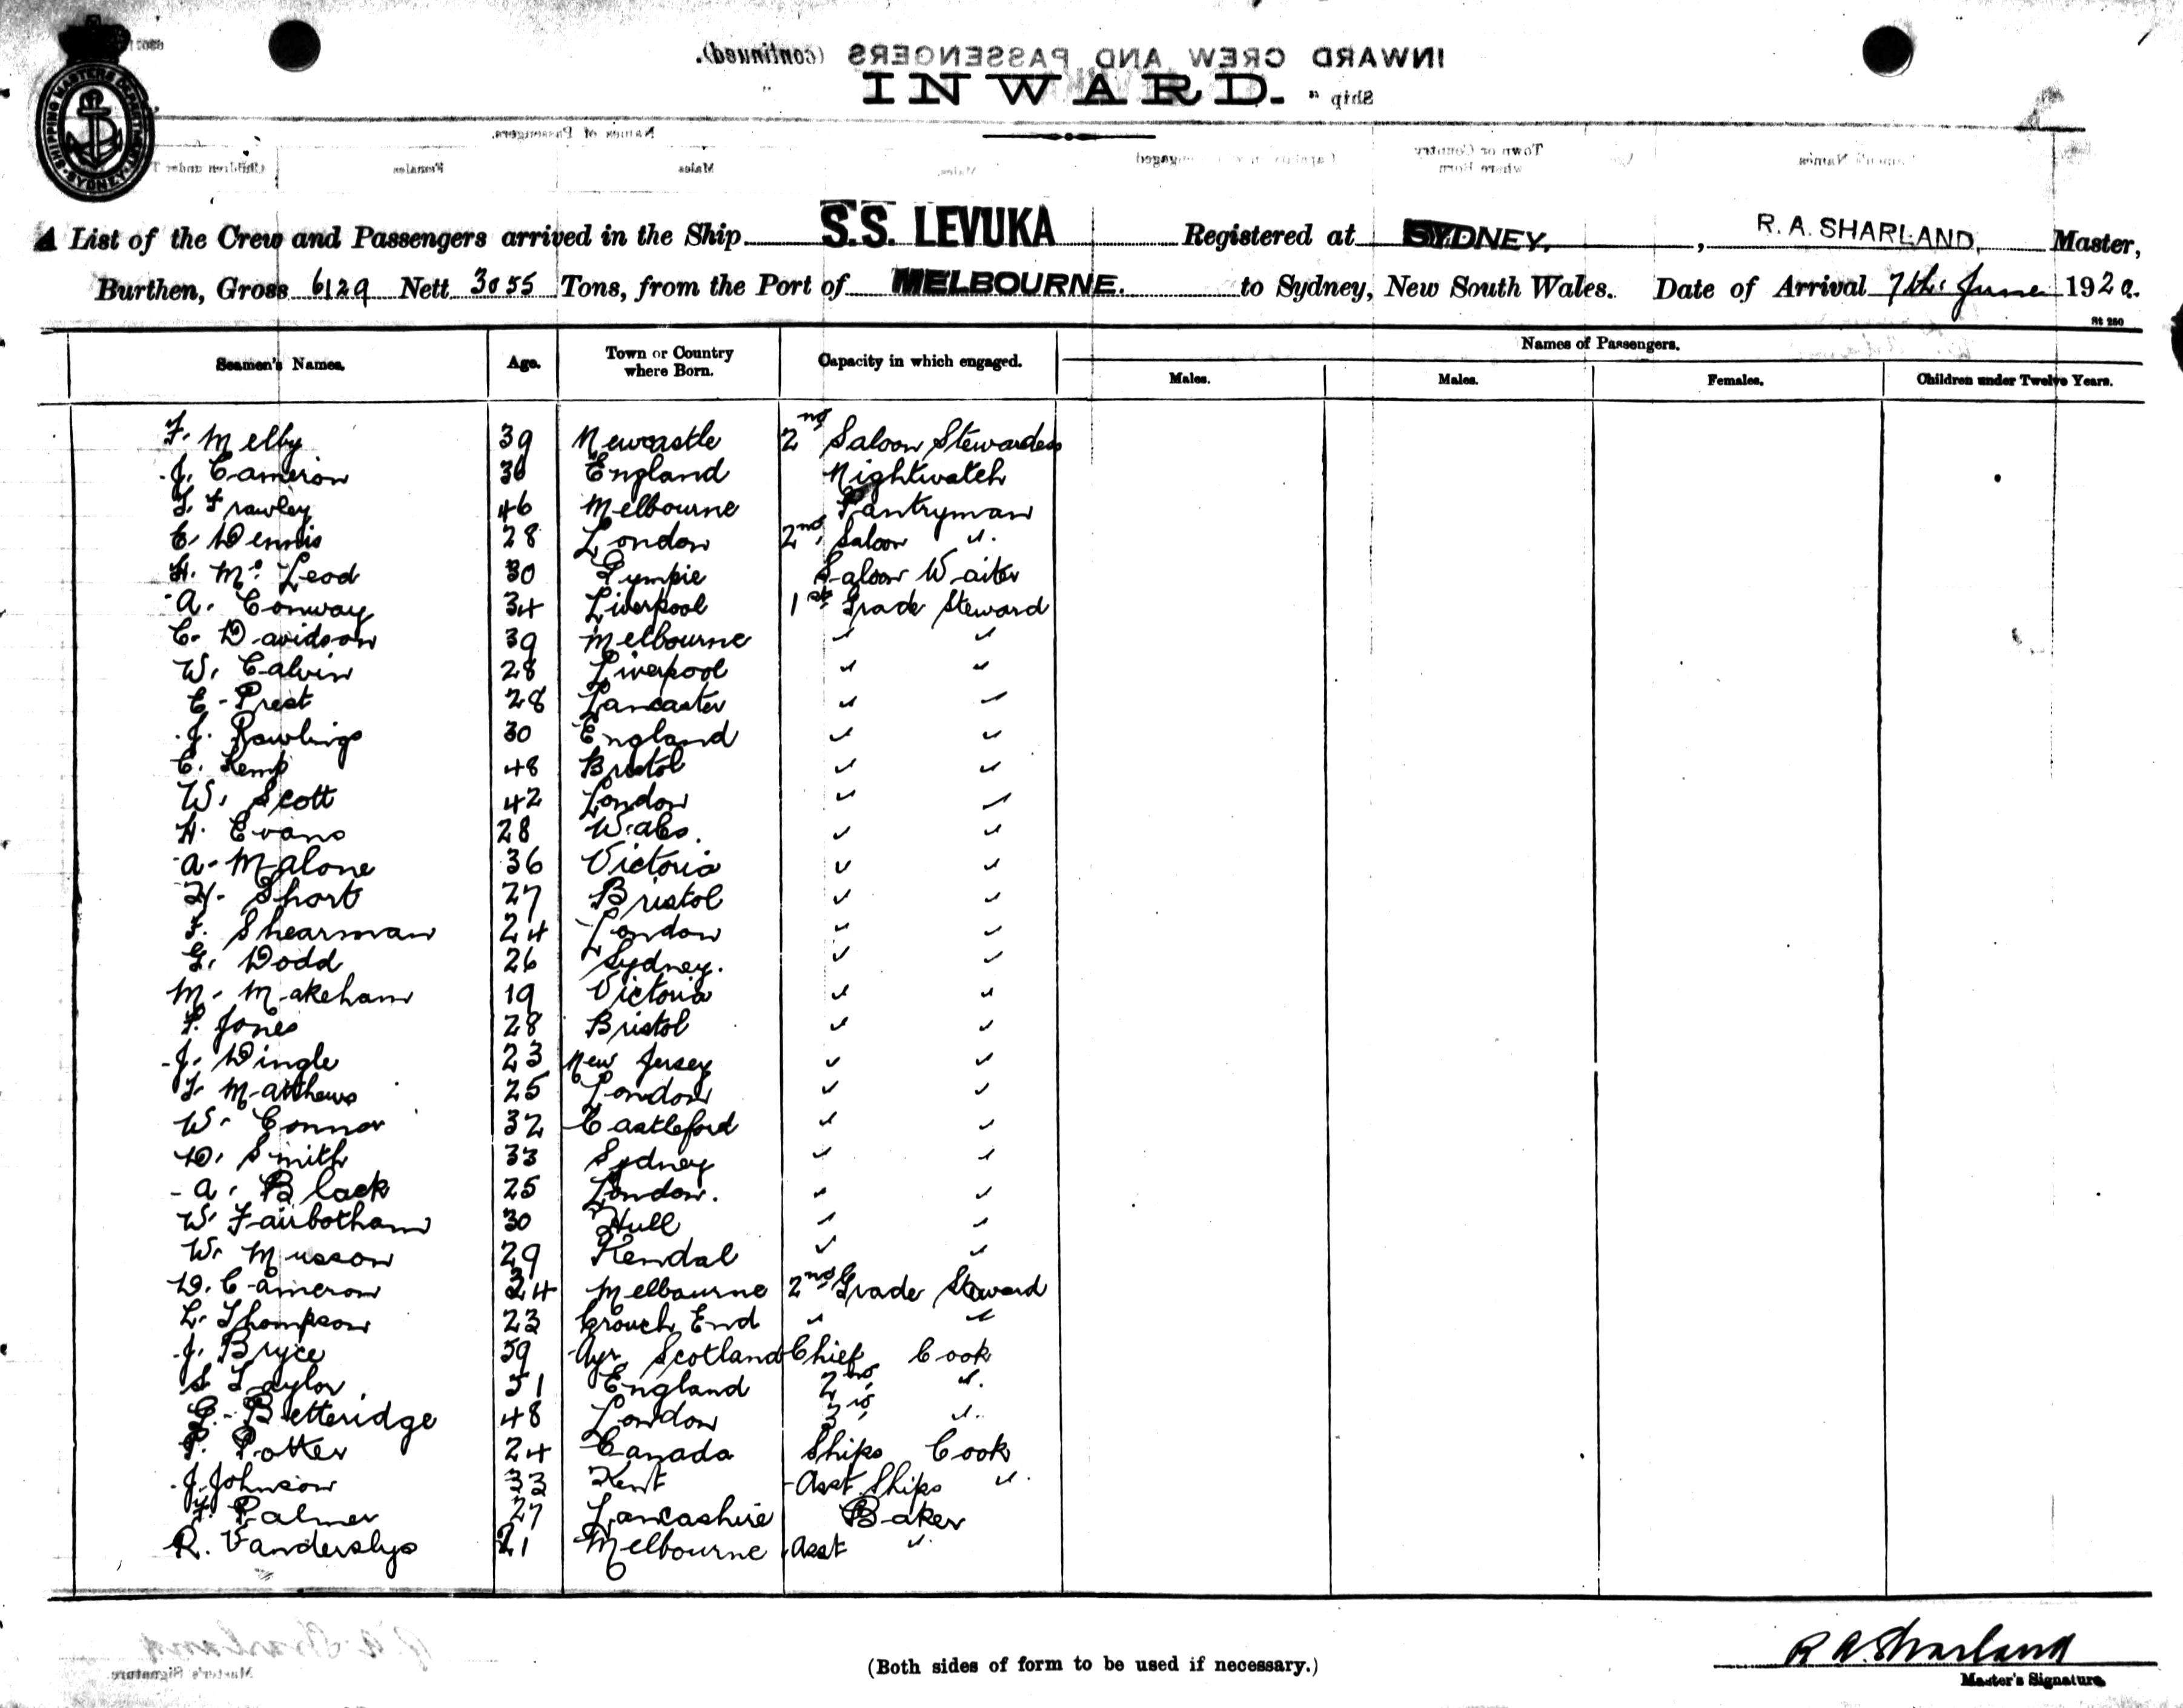 INWARD CREW AND PASSENGERS (continued).
INWARD.
Ship "
Names of Passengers.
Children under T
Females
Males
Males.
engaged
Town or Country
where Born
Names
SHIPPING MASTERS DEPARTMENT SYDNEY
A List of the Crew and Passengers arrived in the Ship S.S. LEVUKA Registered at SYDNEY, , R. A. SHARLAND, Master,
Burthen, Gross 6129 Nett 3055 Tons, from the Port of MELBOURNE. to Sydney, New South Wales. Date of Arrival 7th June 1920.
St 250
Seamen's Names. Age. Town or Country where Born. Capacity in which engaged. Names of Passengers.
Males. Males. Females. Children under Twelve Years.
F. Melby 39 Newcastle 2nd Saloon Stewardess
J. Cameron 36 England Nightwatch
T. Frawley 46 Melbourne Pantryman
E. Dennis 28 London 2nd Saloon "
H. McLeod 30 Gympie Saloon Waiter
A. Conway 34 Liverpool 1st Grade Steward
C. Davidson 39 Melbourne " "
W. Calvin 28 Liverpool " "
E. Prest 28 Lancaster " "
J. Rawlings 30 England " "
C. Kemp 48 Bristol " "
W. Scott 42 London " "
H. Evans 28 Wales. " "
A. Malone 36 Victoria " "
H. Short 27 Bristol " "
F. Shearman 24 London " "
G. Dodd 26 Sydney. " "
M. Makeham 19 Victoria " "
P. Jones 28 Bristol " "
J. Dingle 23 New Jersey " "
T. Matthews 25 London " "
W. Connor 32 Castleford " "
D. Smith 33 Sydney " "
A. Black 25 London. " "
W. Fairbotham 30 Hull " "
W. Musson 29 Kendal " "
D. Cameron 24 Melbourne 2nd Grade Steward
L. Thompson 23 Crouch End " "
J. Bryce 59 Ayr Scotland Chief Cook
S. Taylor 51 England 2nd "
G. Betteridge 48 London 3rd "
P. Potter 24 Canada Ships Cook
J. Johnson 33 Kent Asst. Ships "
F. Palmer 27 Lancashire Baker
R. Vanderslys 21 Melbourne Asst "
R A Sharland
Master's Signature
(Both sides of form to be used if necessary.)
R A Sharland
Master's Signature